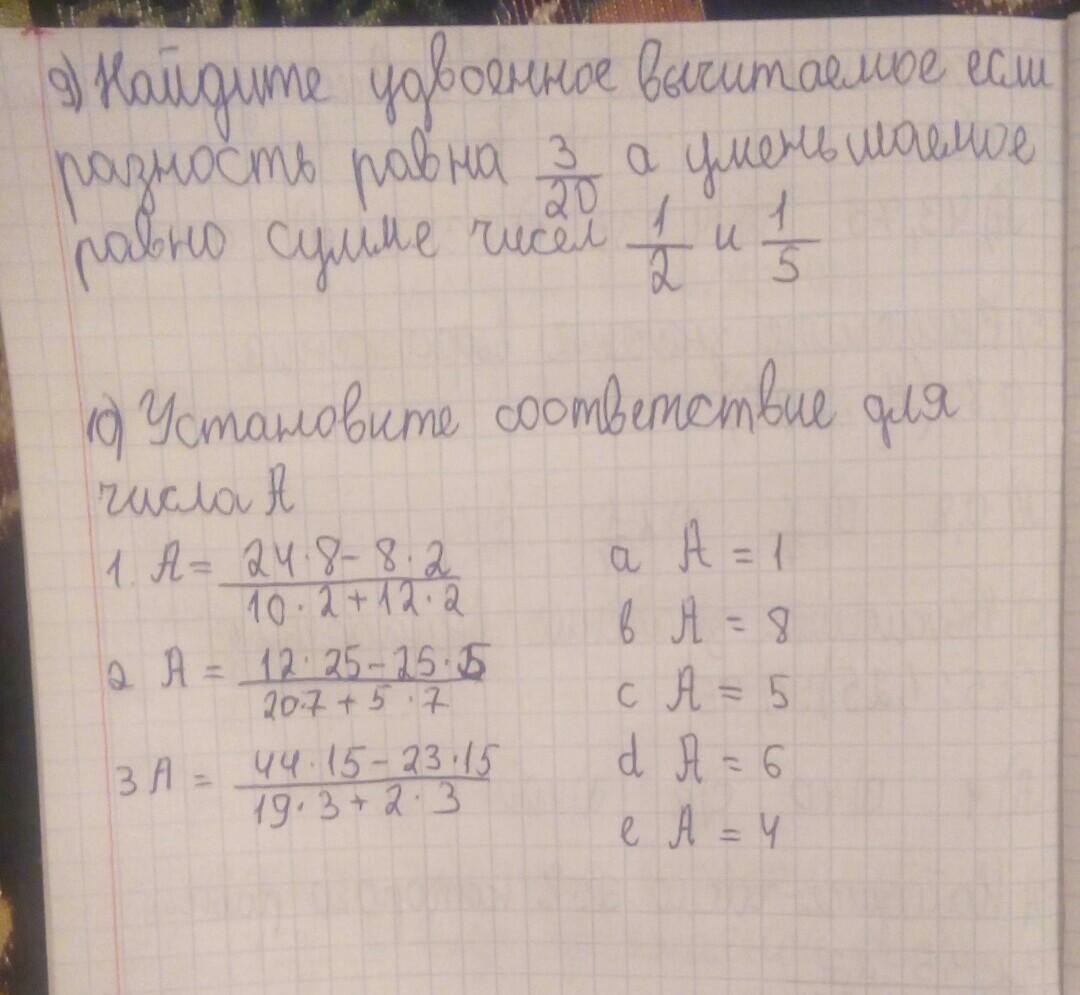 9) Найдите удвоенное вычитаемое если
разность равна 3/20 а уменьшаемое
равно сумме чисел 1/2 и 1/5
10) Установите соответствие для
числа А
1. А = (24·8 - 8·2)/(10·2 + 12·2) a A = 1
2 А = (12·25 - 25·5)/(20·7 + 5·7) b A = 8
c A = 5
3 А = (44·15 - 23·15)/(19·3 + 2·3) d A = 6
e A = 4